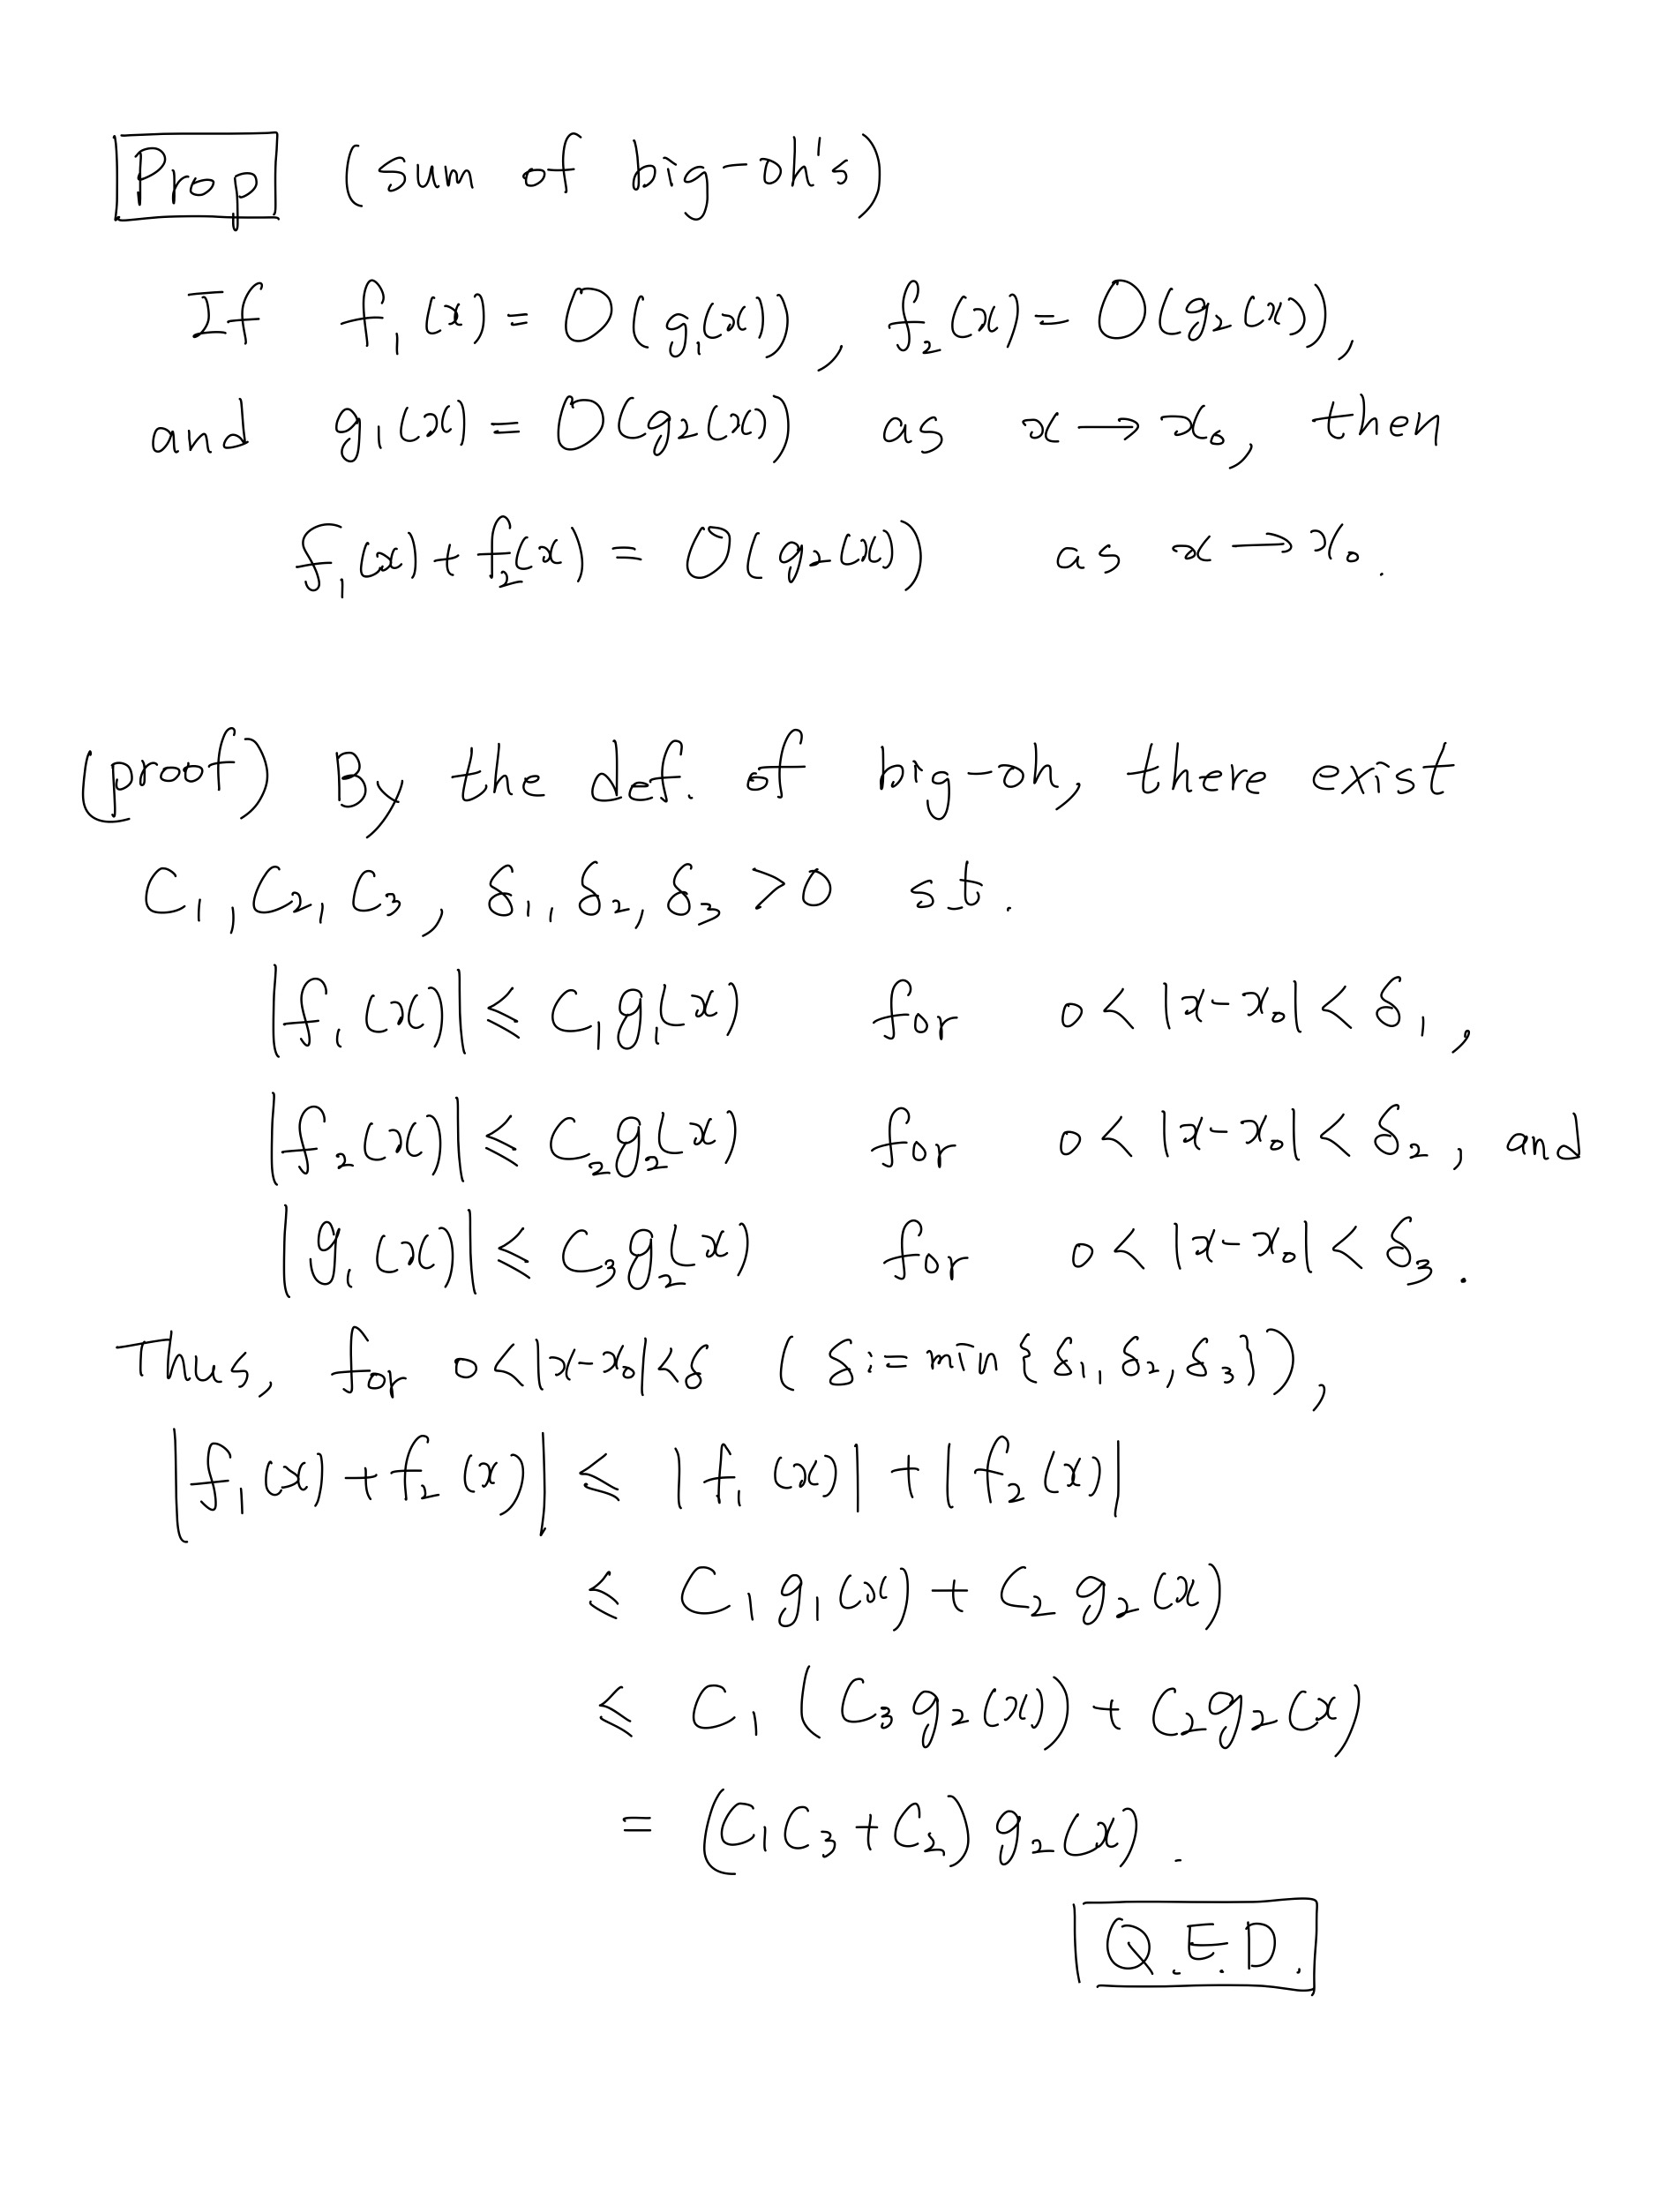 Prop (sum of big-oh's)
If f₁(x) = O(g₁(x)), f₂(x) = O(g₂(x)),
and g₁(x) = O(g₂(x)) as x → x₀, then
f₁(x) + f₂(x) = O(g₂(x)) as x → x₀.
(proof) By the def. of big-oh, there exist
C₁, C₂, C₃, δ₁, δ₂, δ₃ > 0 s.t.
|f₁(x)| ≤ C₁g₁(x) for 0 < |x - x₀| < δ₁,
|f₂(x)| ≤ C₂g₂(x) for 0 < |x - x₀| < δ₂, and
|g₁(x)| ≤ C₃g₂(x) for 0 < |x - x₀| < δ₃.
Thus, for 0 < |x - x₀| < δ (δ := min{δ₁, δ₂, δ₃}),
|f₁(x) + f₂(x)| ≤ |f₁(x)| + |f₂(x)|
≤ C₁g₁(x) + C₂g₂(x)
≤ C₁(C₃g₂(x)) + C₂g₂(x)
= (C₁C₃ + C₂)g₂(x).
Q.E.D.